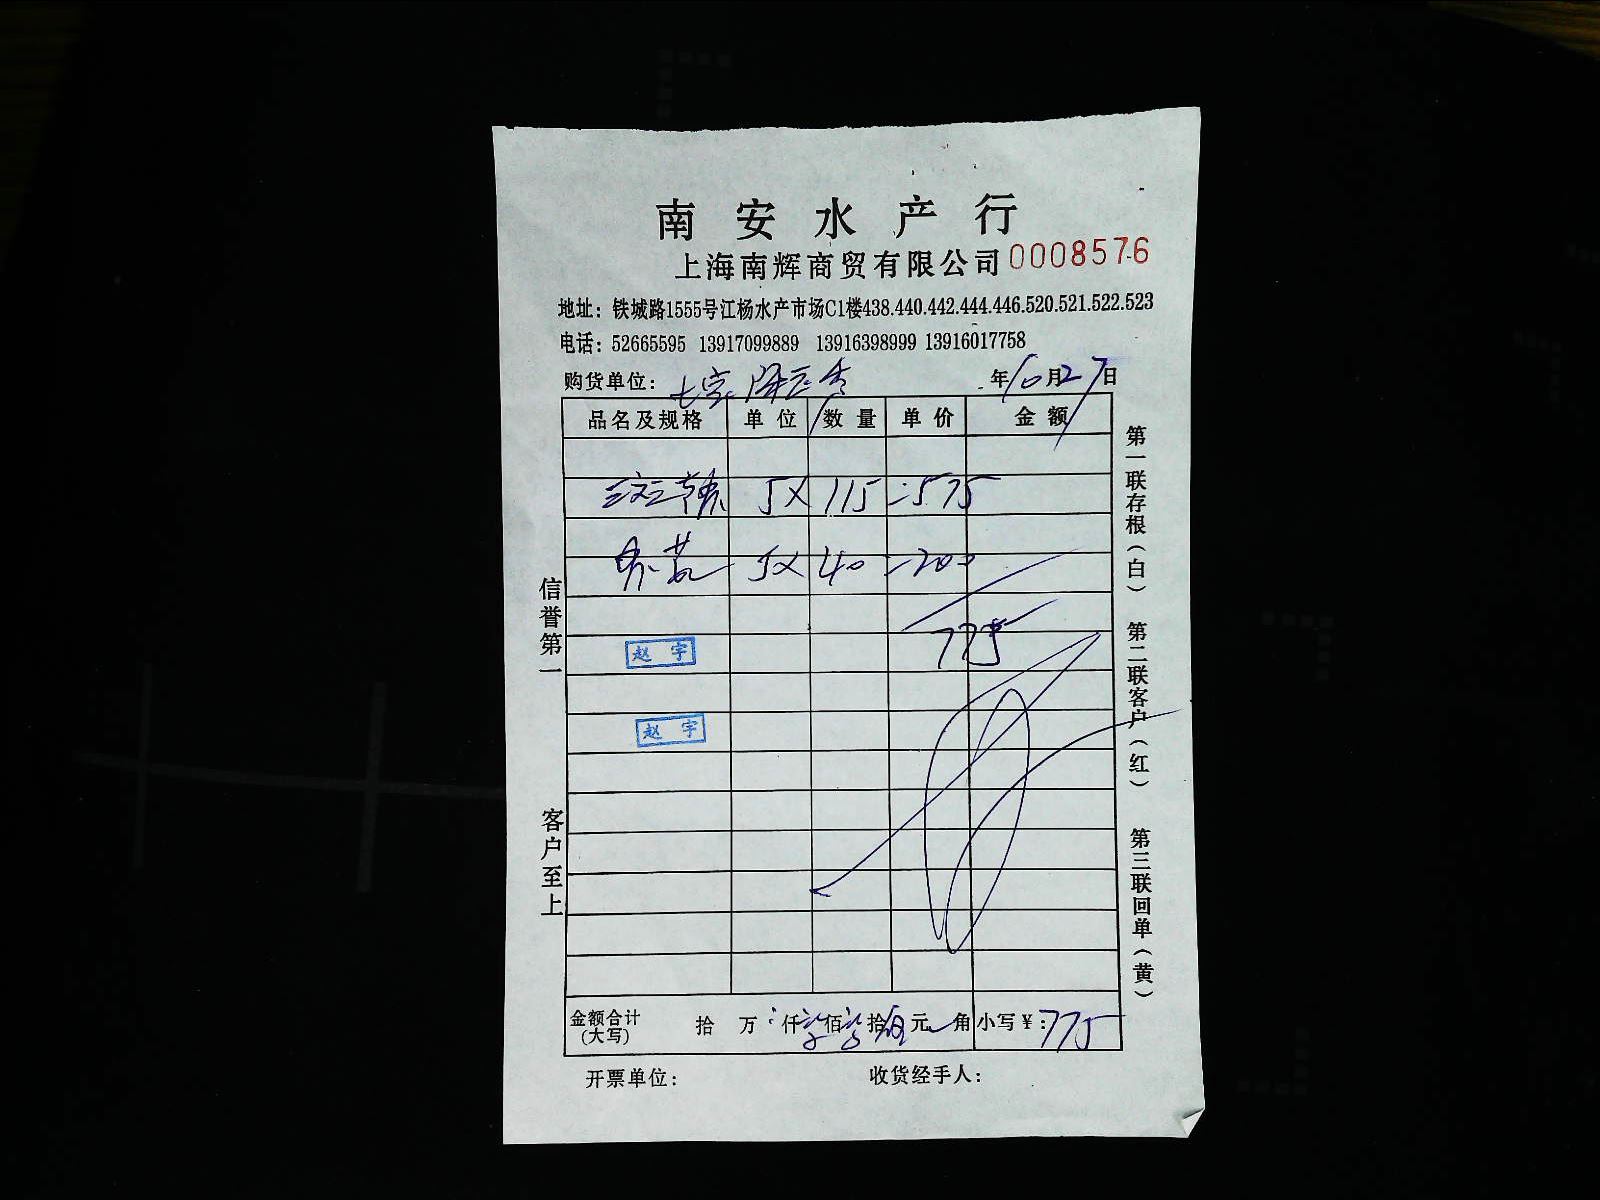 南安水产行
上海南辉商贸有限公司 0008576
地址：铁城路1555号江杨水产市场C1楼438.440.442.444.446.520.521.522.523
电话：52665595 13917099889 13916398999 13916017758
购货单位： 年10月27日
品名及规格 单位 数量 单价 金额
5× 115 =575
5× 40 =200
775
赵宇
赵宇
金额合计(大写) 拾 万 仟 柒 佰 柒 拾 伍 元 角 小写￥：775
开票单位： 收货经手人：
信誉第一
客户至上
第一联存根（白）
第二联客户（红）
第三联回单（黄）